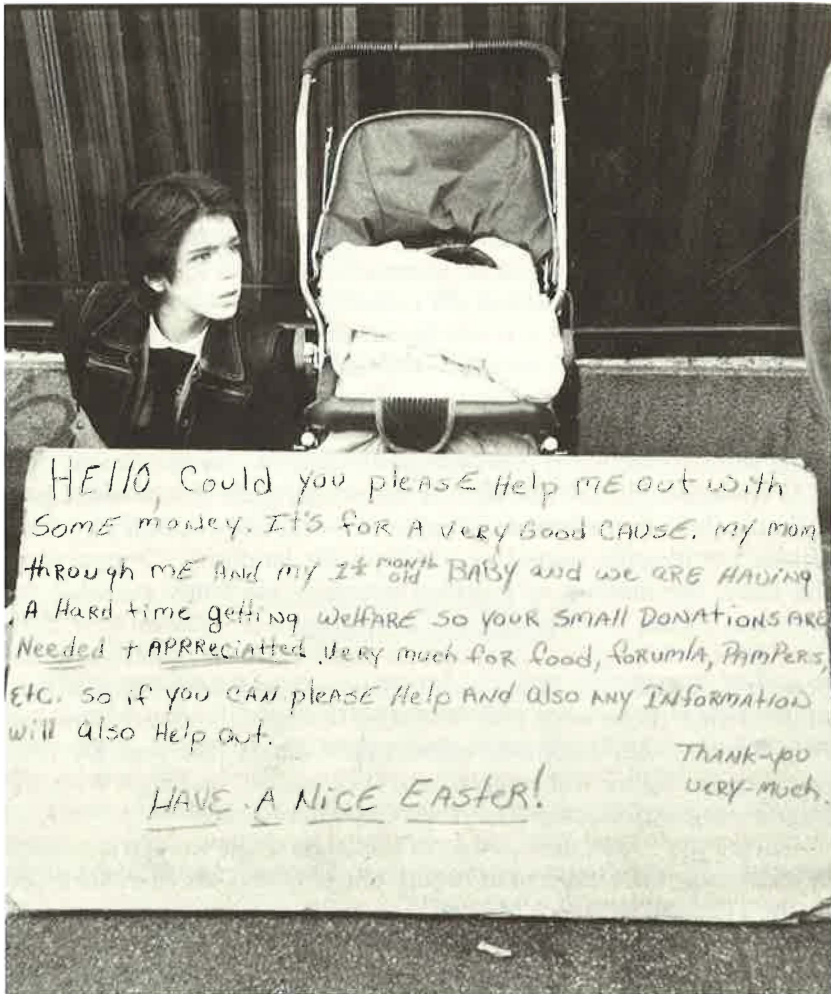 HEllO, Could you plEASE Help mE out with
SomE monEy. It's foR A VERy Good CAUSE. my mom
thRough mE AND my 1½ month old BABY and we aRE HAVING
A HaRd time getting WElfARE SO YOUR SMAll DONAtIONS ARE
Needed + APRReciatted VERy much foR food, foRumlA, PAmPERS,
Etc. so if you CAN plEASE Help AND also ANY INfoRmAtION
will also Help out.
THANK-you
VERY-much.
HAVE A NiCE EAStER!